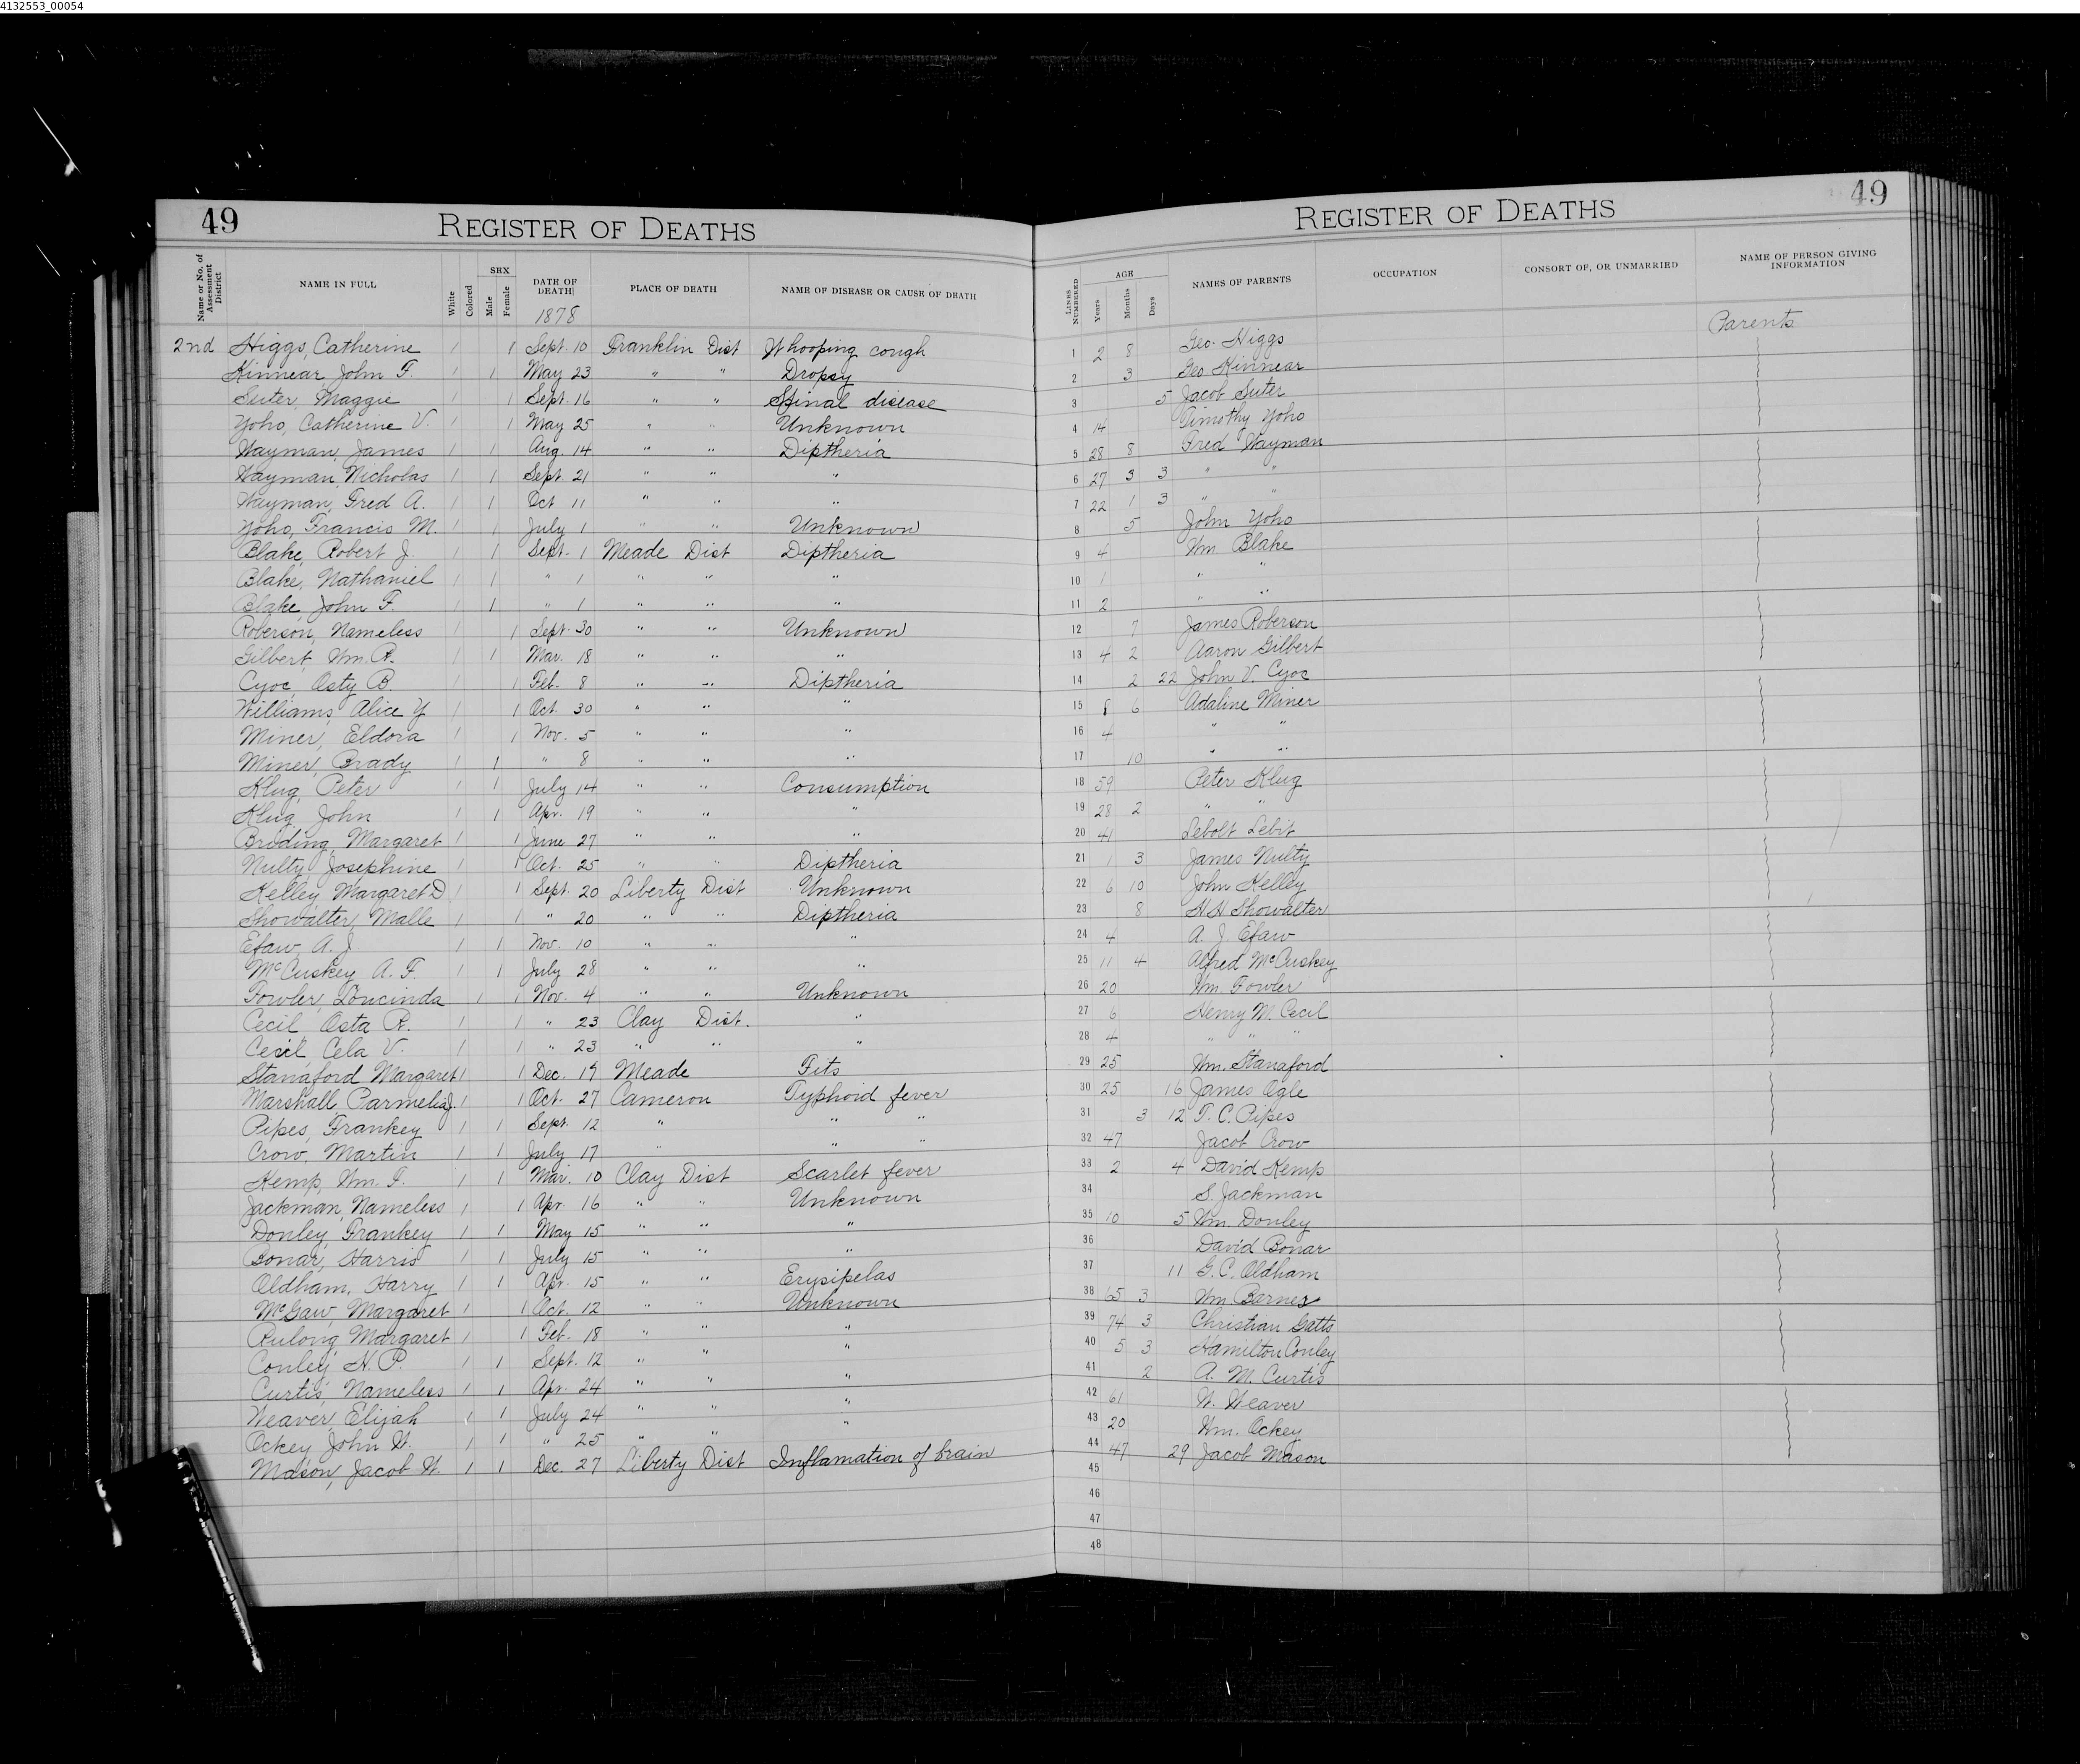 4132553_00054
49 REGISTER OF DEATHS
Name or No. of Assessment District
NAME IN FULL
White
Colored
SEX
Male
Female
DATE OF DEATH
1878
PLACE OF DEATH
NAME OF DISEASE OR CAUSE OF DEATH
2nd Higgs, Catherine 1 1 Sept. 10 Franklin Dist Whooping cough
Kinnear, John F. 1 1 May 23 " " Dropsy
Suter, Maggie 1 1 Sept. 16 " " Spinal disease
Yoho, Catherine V. 1 1 May 25 " " Unknown
Wayman, James 1 1 Aug. 14 " " Diptheria
Wayman, Nicholas 1 1 Sept. 21 " " "
Wayman, Fred A. 1 1 Oct 11 " " "
Yoho, Francis M. 1 1 July 1 " " Unknown
Blake, Robert J. 1 1 Sept. 1 Meade Dist Diptheria
Blake, Nathaniel 1 1 " 1 " " "
Blake, John F. 1 1 " 1 " " "
Roberson, Nameless 1 1 Sept. 30 " " Unknown
Gilbert, Wm. R. 1 1 Mar. 18 " " "
Cyoc, Osty B. 1 1 Feb. 8 " " Diptheria
Williams, Alice Y 1 1 Oct. 30 " " "
Miner, Eldora 1 1 Nov. 5 " " "
Miner, Brady 1 1 " 8 " " "
Klug, Peter 1 1 July 14 " " Consumption
Klug, John 1 1 Apr. 19 " " "
Briding, Margaret 1 1 June 27 " " "
Nulty, Josephine 1 1 Oct. 25 " " Diptheria
Kelley, Margaret D 1 1 Sept. 20 Liberty Dist Unknown
Showalter, Malle 1 1 " 20 " " Diptheria
Efaw, A. J 1 1 Nov. 10 " " "
McCuskey, A. F. 1 1 July 28 " " "
Fowler, Loucinda 1 1 Nov. 4 " " Unknown
Cecil, Osta R. 1 1 " 23 Clay Dist. "
Cecil, Cela V. 1 1 " 23 " " "
Stanaford Margaret 1 1 Dec. 19 Meade Fits
Marshall, Parmelia J. 1 1 Oct. 27 Cameron Typhoid fever
Pipes, Frankey 1 1 Sept. 12 " " "
Crow, Martin 1 1 July 17 " " "
Kemp, Wm. F. 1 1 Mar. 10 Clay Dist Scarlet fever
Jackman, Nameless 1 1 Apr. 16 " " Unknown
Donley, Frankey 1 1 May 15 " " "
Bonar, Harris 1 1 July 15 " " "
Oldham, Harry 1 1 Apr. 15 " " Erysipelas
McGaw, Margaret 1 1 Oct. 12 " " Unknown
Rulong Margaret 1 1 Feb. 18 " " "
Conley, H. P. 1 1 Sept. 12 " " "
Curtis, Nameless 1 1 Apr. 24 " " "
Weaver, Elijah 1 1 July 24 " " "
Ockey, John W. 1 1 " 25 " "
Mason, Jacob W. 1 1 Dec. 27 Liberty Dist Inflamation of brain
REGISTER OF DEATHS 49
LINES NUMBERED
AGE
Years
Months
Days
NAMES OF PARENTS
OCCUPATION
CONSORT OF, OR UNMARRIED
NAME OF PERSON GIVING INFORMATION
Parents
1 2 8 Geo. Higgs
2 3 Geo Kinnear
3 5 Jacob Suter
4 14 Timothy Yoho
5 28 8 Fred Wayman
6 27 3 3 " "
7 22 1 3 " "
8 5 John Yoho
9 4 Wm Blake
10 1 " "
11 2 " "
12 7 James Roberson
13 4 2 Aaron Gilbert
14 2 22 John V. Cyoc
15 8 6 Adaline Miner
16 4 " "
17 10 " "
18 59 Peter Klug
19 28 2 " "
20 41 Lebolt Lebit
21 1 3 James Nulty
22 6 10 John Kelley
23 8 H H Showalter
24 4 A. J. Efaw
25 11 4 Alfred McCuskey
26 20 Wm. Fowler
27 6 Henry M. Cecil
28 4 " "
29 25 Wm. Stanaford
30 25 16 James Ogle
31 3 12 T. C. Pipes
32 47 Jacob Crow
33 2 4 David Kemp
34 S. Jackman
35 10 5 Wm. Donley
36 David Bonar
37 11 G. C. Oldham
38 65 3 Wm. Barnes
39 74 3 Christian Gatts
40 5 3 Hamilton Conley
41 2 A. M. Curtis
42 61 W. Weaver
43 20 Wm. Ockey
44 47 29 Jacob Mason
45
46
47
48